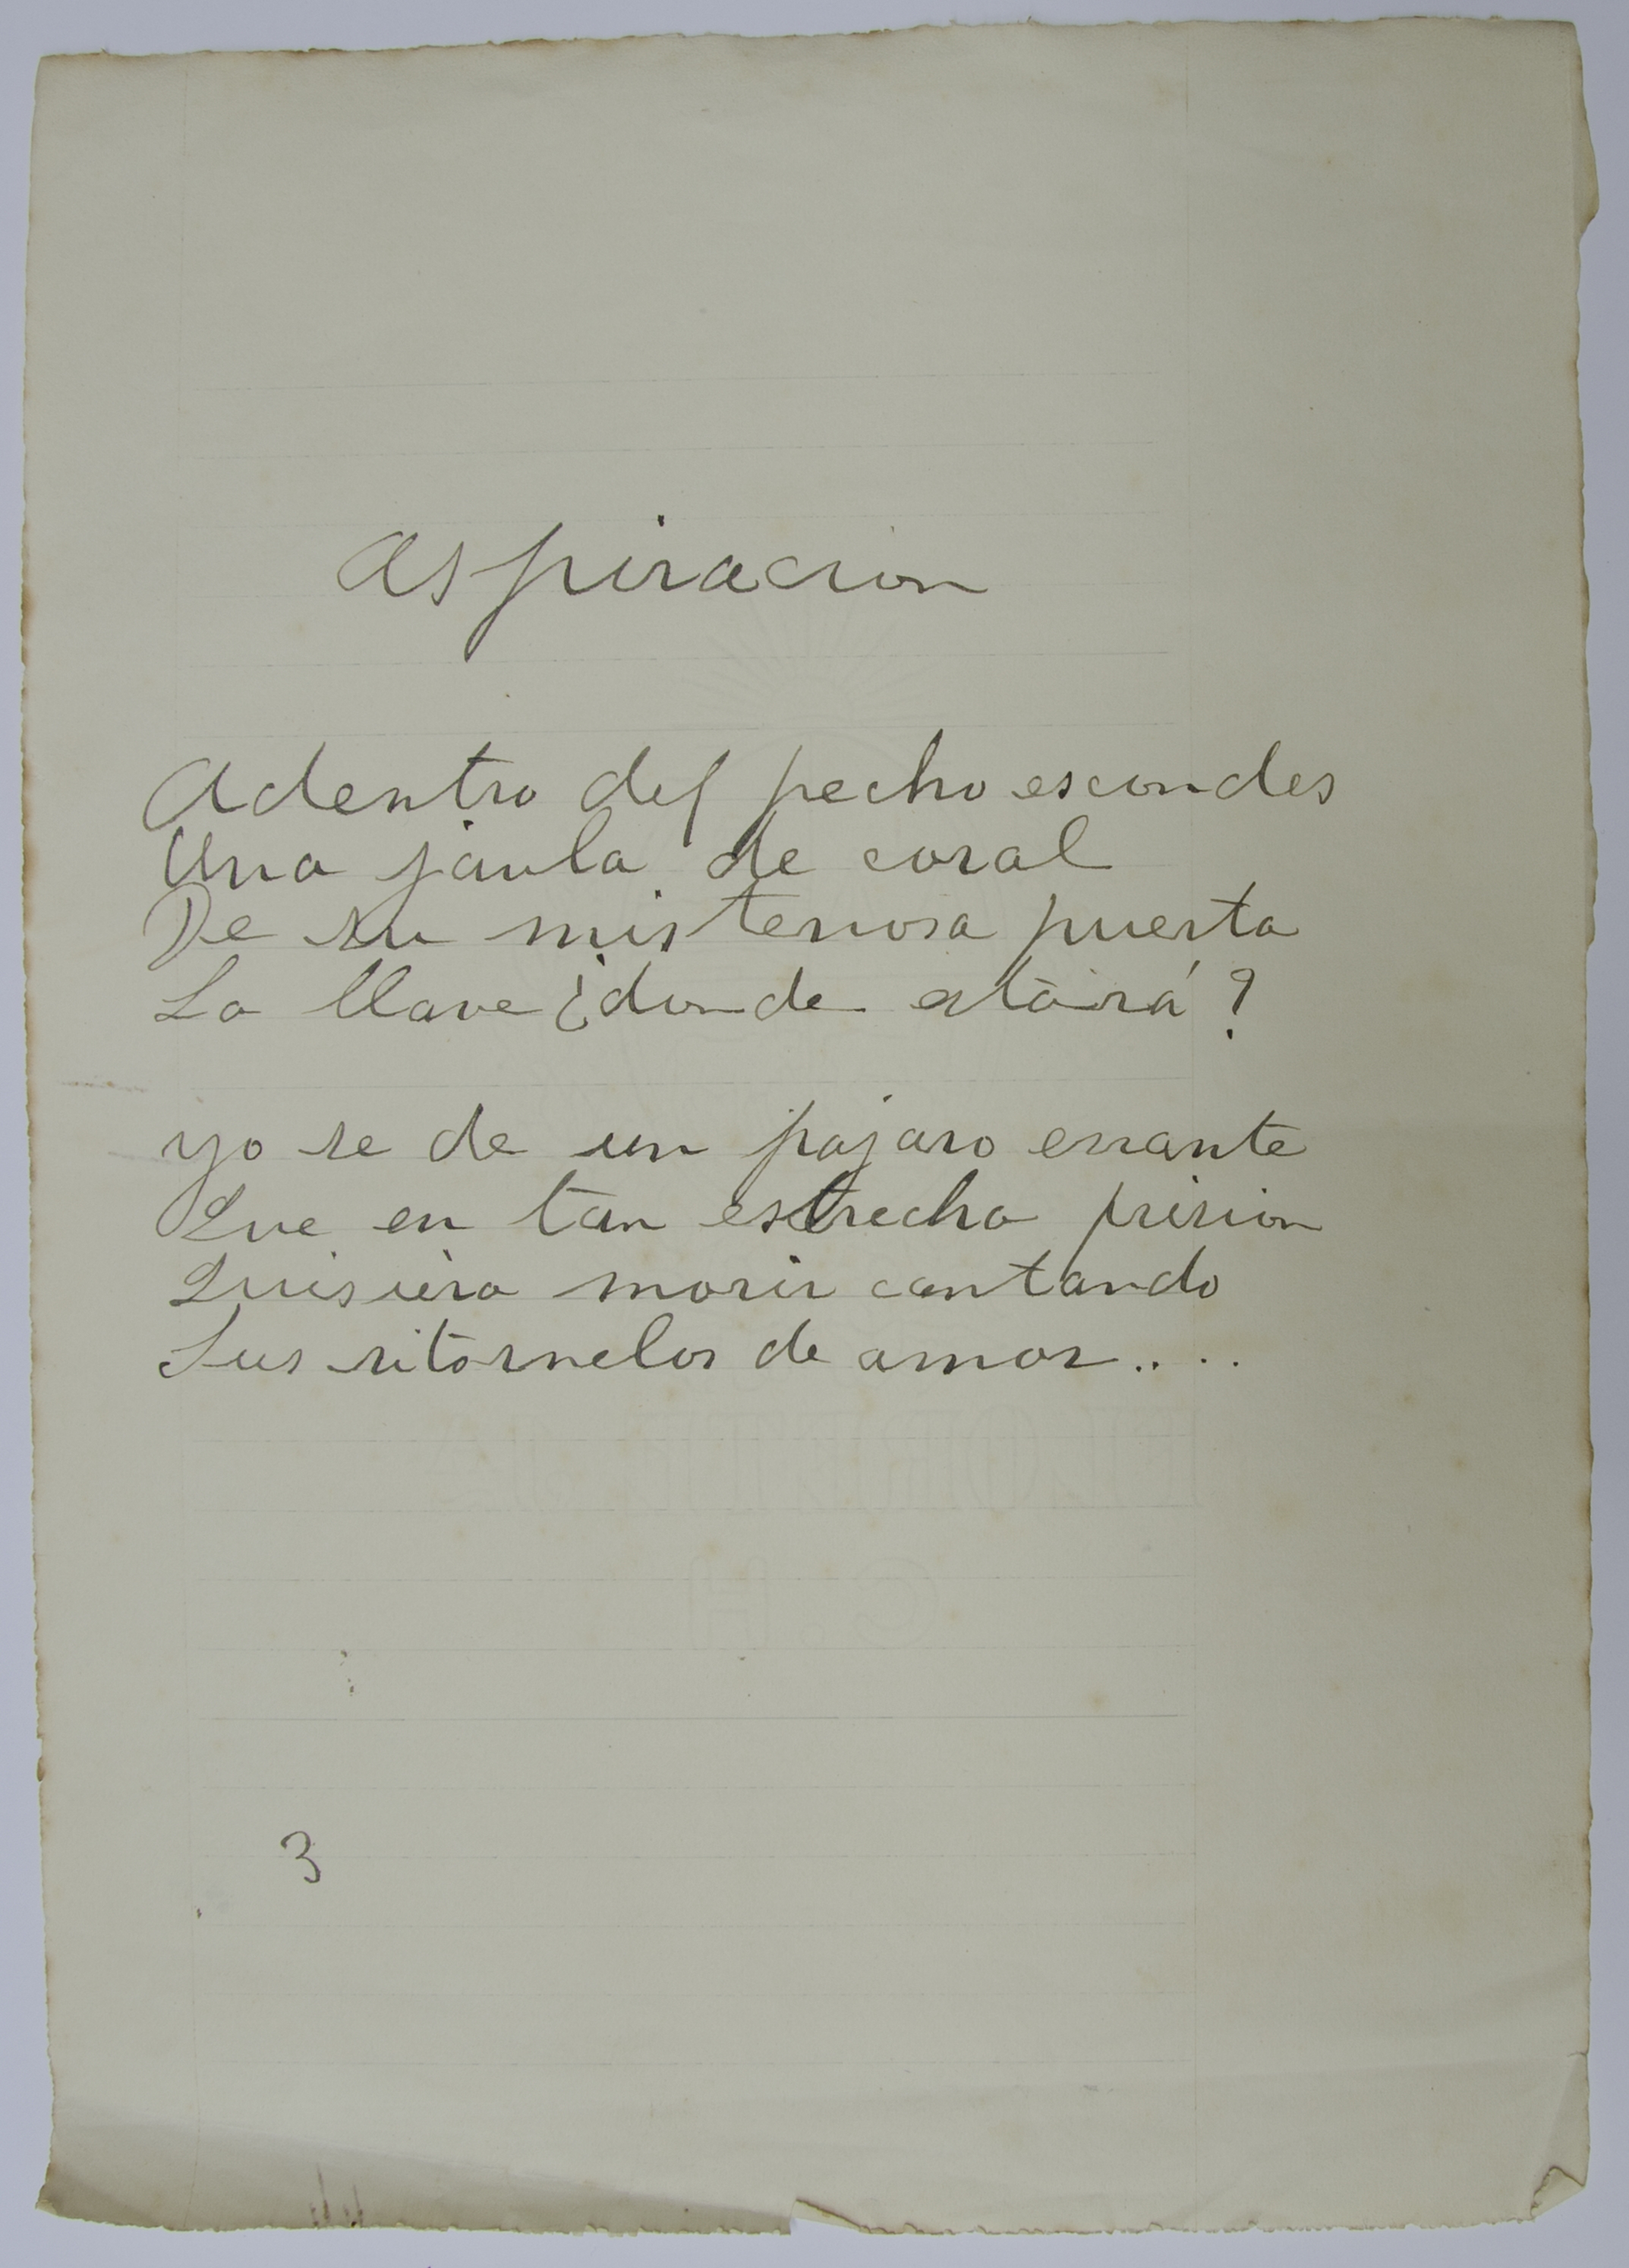 Aspiracion
Adentro del pecho escondes
Una jaula de coral
De su misteriosa puerta
La llave ¿donde estará?
Yo se de un pajaro errante
Que en tan estrecha prision
Quisiera morir cantando
Sus ritornelos de amor....
3